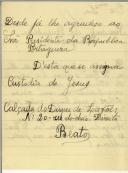 Desde já lhe agradeço ao
Snr Presidente da Republica
Portuguesa
Desta que se assigna
Custodia de Jesus
Calçada do Duque de Lafões
Nº 20-
Direito
Beato